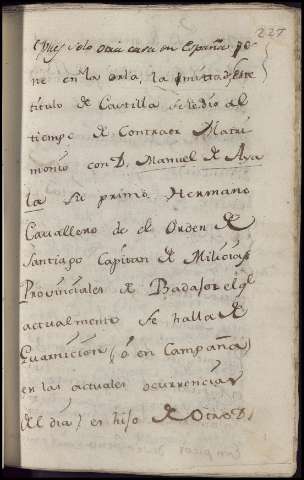 227
(Pues solo otra casa en España tie
ne en la orla, la
titulo de Castilla se le dio al
tiempo de Contraer Matri
monio con D. Manuel de Aya
la su primo Hermano
Cavallero de el Orden de
Santiago Capitan de Milicias
Provinciales de Badajoz el ql
actualmente se halla de
Guarnicion (ò en Campaña)
en las actuales ocurrencias
del dia) es hijo de Otro D.